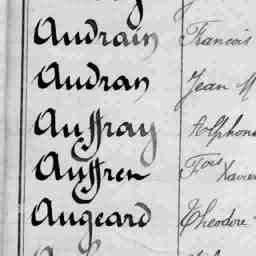 Audrain Francois
Audran Jean M
Auffray Alphons
Auffren Fois Xavier
Augeard Theodore